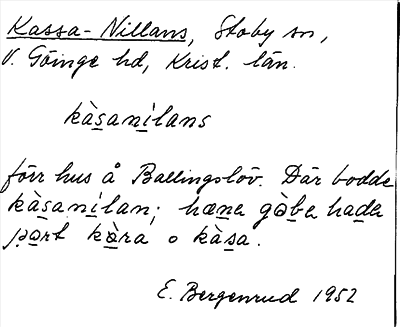 Kassa-Nillans, Stoby sn,
V. Göinge hd, Krist. län.
kàsanílans
förr hus å Ballingslöv. Där bodde
kàsanílan; hæna gòba hada
pɑrt kòra o kàsa.
E. Bergenrud 1952